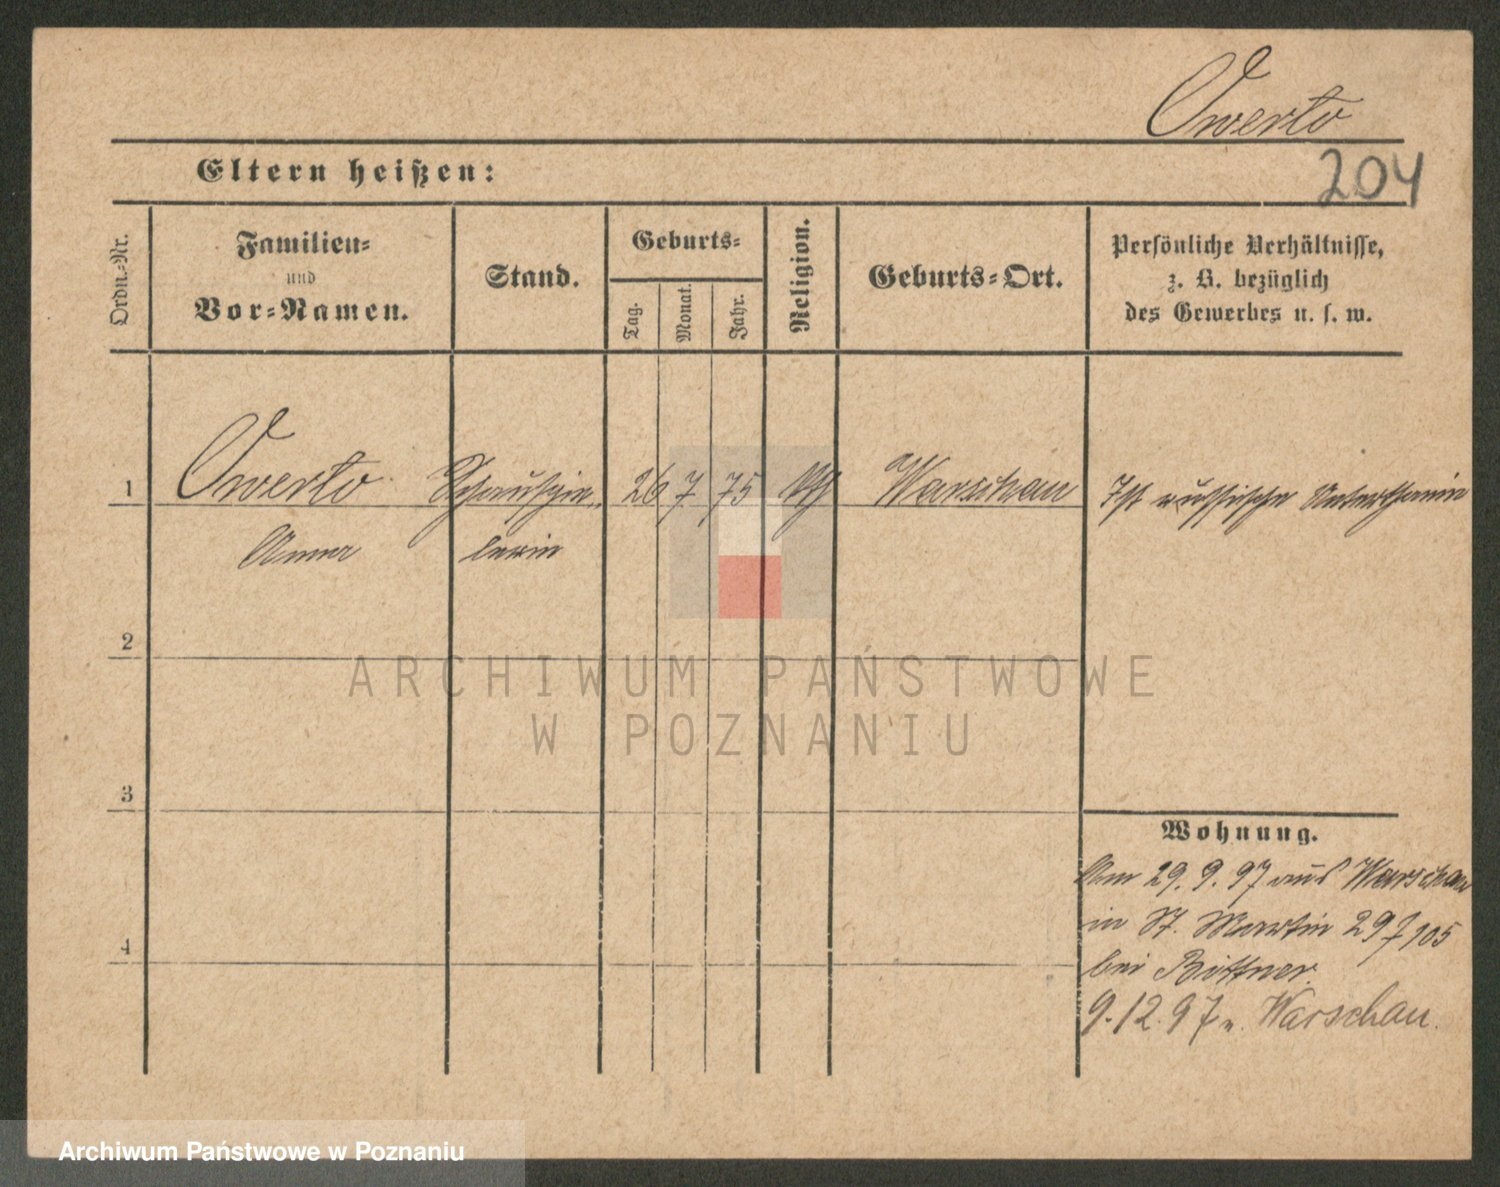 Owerto
204
Eltern heißen:
Ordn.-Nr.
Familien-
und
Vor-Namen.
Stand.
Geburts-
Tag.
Monat.
Jahr.
Religion.
Geburts-Ort.
Persönliche Verhältnisse,
z. B. bezüglich
des Gewerbes u. s. w.
1
Owerto
Schauspie-
26
7
75
Warschau
Ist russische Unterthanin
Anna
lerin
2
ARCHIWUM PAŃSTWOWE
W POZNANIU
3
Wohnung.
Am 29. 9. 97 aus Warschau
in St. Martin 29
bei Bittner.
4
9. 12. 97 n. Warschau.
Archiwum Państwowe w Poznaniu